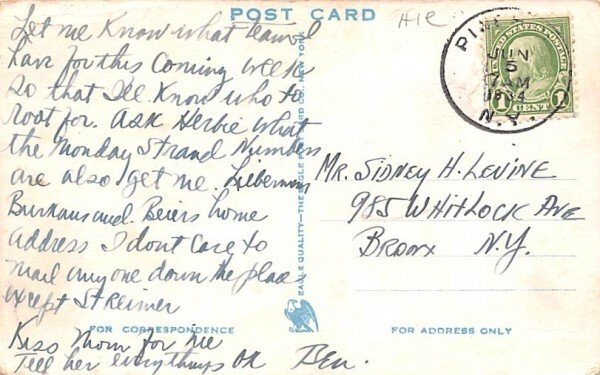 POST CARD
Let me Know what team I
have for this Coming week
so that I'll Know who to
root for. Ask Herbie what
the Monday Strand Numbers
are also get me. Lieberman
and. Beiers home
address I dont Care to
mail anyone down the place
except Streimer
Kiss Mom for me
Tell her everythings OK Ben.
EAGLE QUALITY—THE EAGLE POST CARD CO. NEW YORK
FOR CORRESPONDENCE
Ale
JUN
5
7 AM
N.Y.
UNITED STATES POSTAGE
1 CENT 1
MR. SIDNEY H. LEVINE
985 WHITLOCK AVE
BRONX N.Y.
FOR ADDRESS ONLY